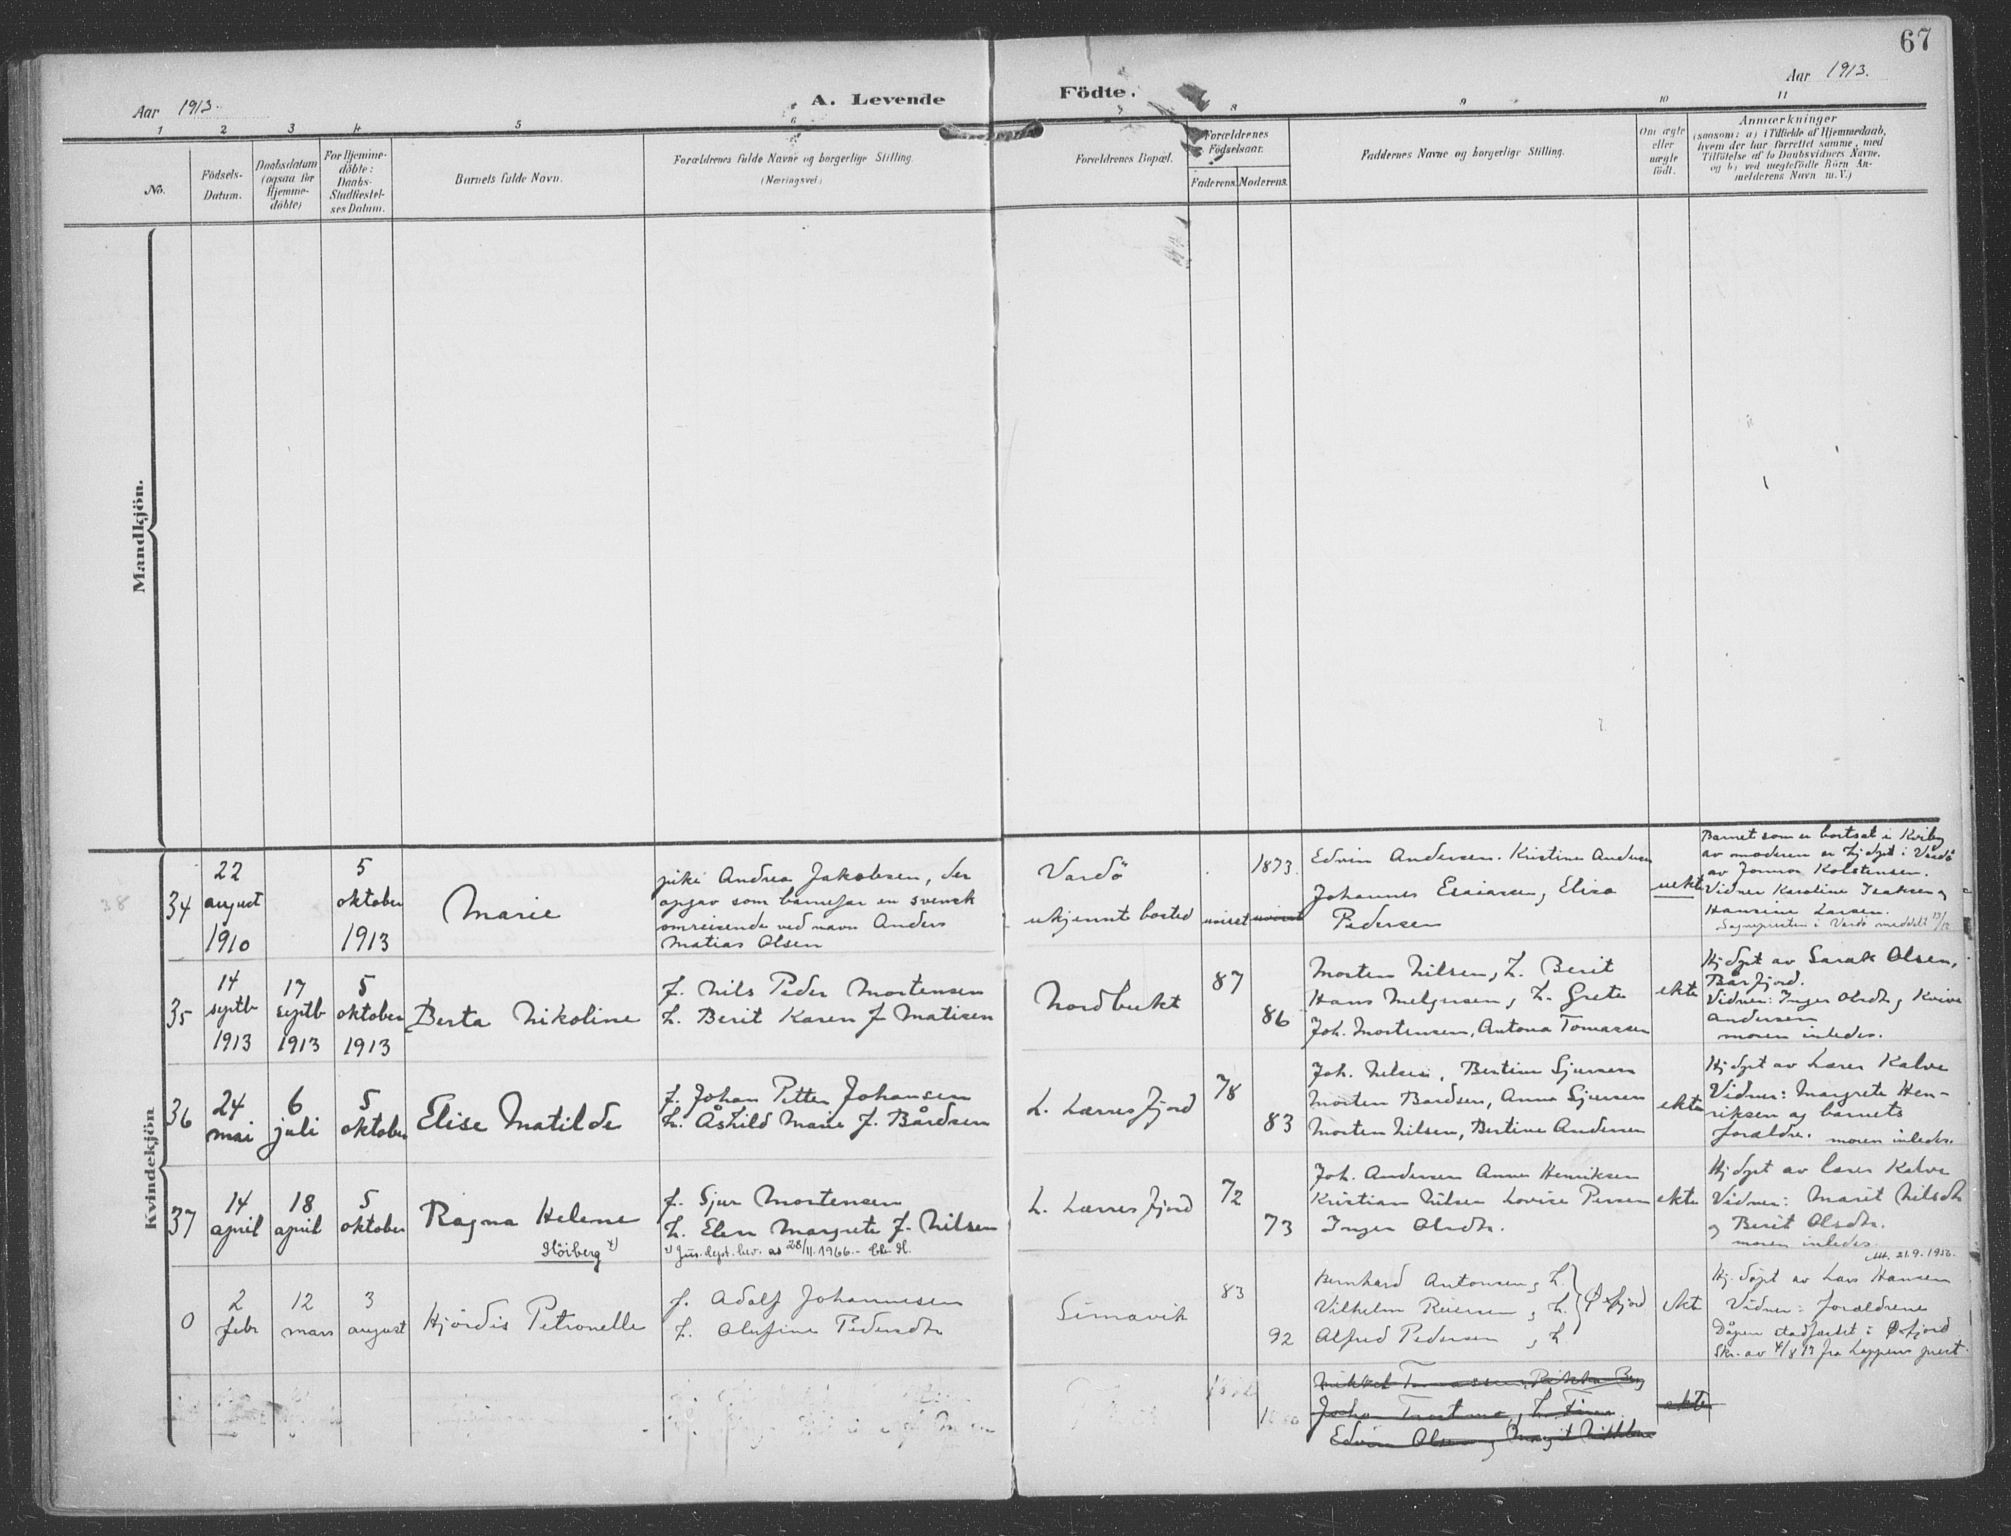 67
Aar 1913.
A. Levende Födte.
Aar 1913.
1 2 3 4 5 6 7 8 9 10 11
No.
Födsels-
Datum.
Daabsdatum
(ogsaa for
Hjemme-
döbte)
For Hjemme-
döbte:
Daabs-
Stadfæstel-
ses Datum.
Barnets fulde Navn.
Forældrenes fulde Navne og borgerlige Stilling.
(Næringsvei)
Forældrenes Bopæl.
Forældrenes
Födselsaar.
Faderens. Moderens.
Faddernes Navne og borgerlige Stilling.
Om ægte
eller
uægte
födt.
Anmærkninger
(saasom: a) i Tilfælde af Hjemmedaab,
hvem der har forrettet samme, med
Tilföielse af to Daabsvidners Navne,
og b) ved uægtefödte Börn An-
melderens Navn m. V.)
Mandkjön.
Kvindekjön
38
34
22
august
1910
5
oktober
1913
Marie
pike Andrea Jakobsen, der
opgav som barnefar en svensk
omreisende ved navn Anders
Matias Olsen
Vardö
ukjennt bosted
uvisst
1873.
Edvin Andersen. Kristine Andersen
Johannes Esaiassen, Elisa
Pedersen
uekte
Barnet som er bortsat i Kviby
av moderen er hjdöpt i Vardö
av Jonna Kolstensen.
Vidner Karoline Isaksen og
Hansine Larsen.
Sognepresten i Vardö meddelt 13/12
35
14
septb
1913
17
septb
1913
5
oktober
1913
Berta Nikoline
f. Nils Peder Mortensen
h. Berit Karen f. Matisen
Nordbukt
87
86
Morten Nilsen, h. Berit
Hans Melgersen, h. Grete
Joh. Mortensen, Antona Tomassen
ekte
Hjdöpt av Sarak Olsen,
Bårfjord.
Vidner: Inger Olsdtr og Kvive
Andersen
moren inledes.
36
24
mai
6
juli
5
oktober
Elise Matilde
f. Johan Petter Johansen
h. Åshild Marie f. Bårdsen
L. Lerresfjord
78
83
Joh. Nilsen, Bertine Sjursen
Morten Bardsen, Anna Sjursen
Morten Nilsen, Bertine Andersen
ekte
Hjdöpt av Lars Kalve
Vidner: Margrete Hen-
riksen og barnets
forældre. moren inledes.
37
14
april
18
april
5
oktober
Ragna Helene
Höiberg x)
f. Sjur Mortensen
h. Elen Margrete f. Nilsen
x) Jus. dept. bev. av 28/11.1966.
L. Lerresfjord
72
73
Joh. Andersen Anna Henriksen
Kristian Nilsen Lovise Persen
Inger Olsdtr.
ekte
Hjdöpt av Lars Kalve
Vidner: Marit Nilsdtr
og Berit Olsdtr.
moren inledes.
Att. 21.9.1950.
0
2
febr
12
mars
3
august
Hjördis Petronelle
f. Adolf Johannesen
h. Olufine Pedersdtr
Simavik
83
92
Bernhard Antonsen, h.
Vilhelm Reiersen, h.
Alfred Pedersen, h
Öxfjord
ekte
Hj. döpt av Lars Hansen
Vidner: forældrene
Dåpen stadfæstet i Öxfjord
Skr. av 4/8 13 fra Loppens prest.
ekte